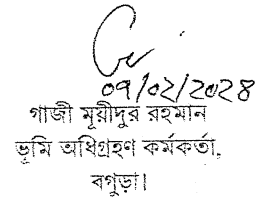 09/02/2028
গাজী মূয়ীদুর রহমান
ভূমি অধিগ্রহণ কর্মকর্তা,
বগুড়া।